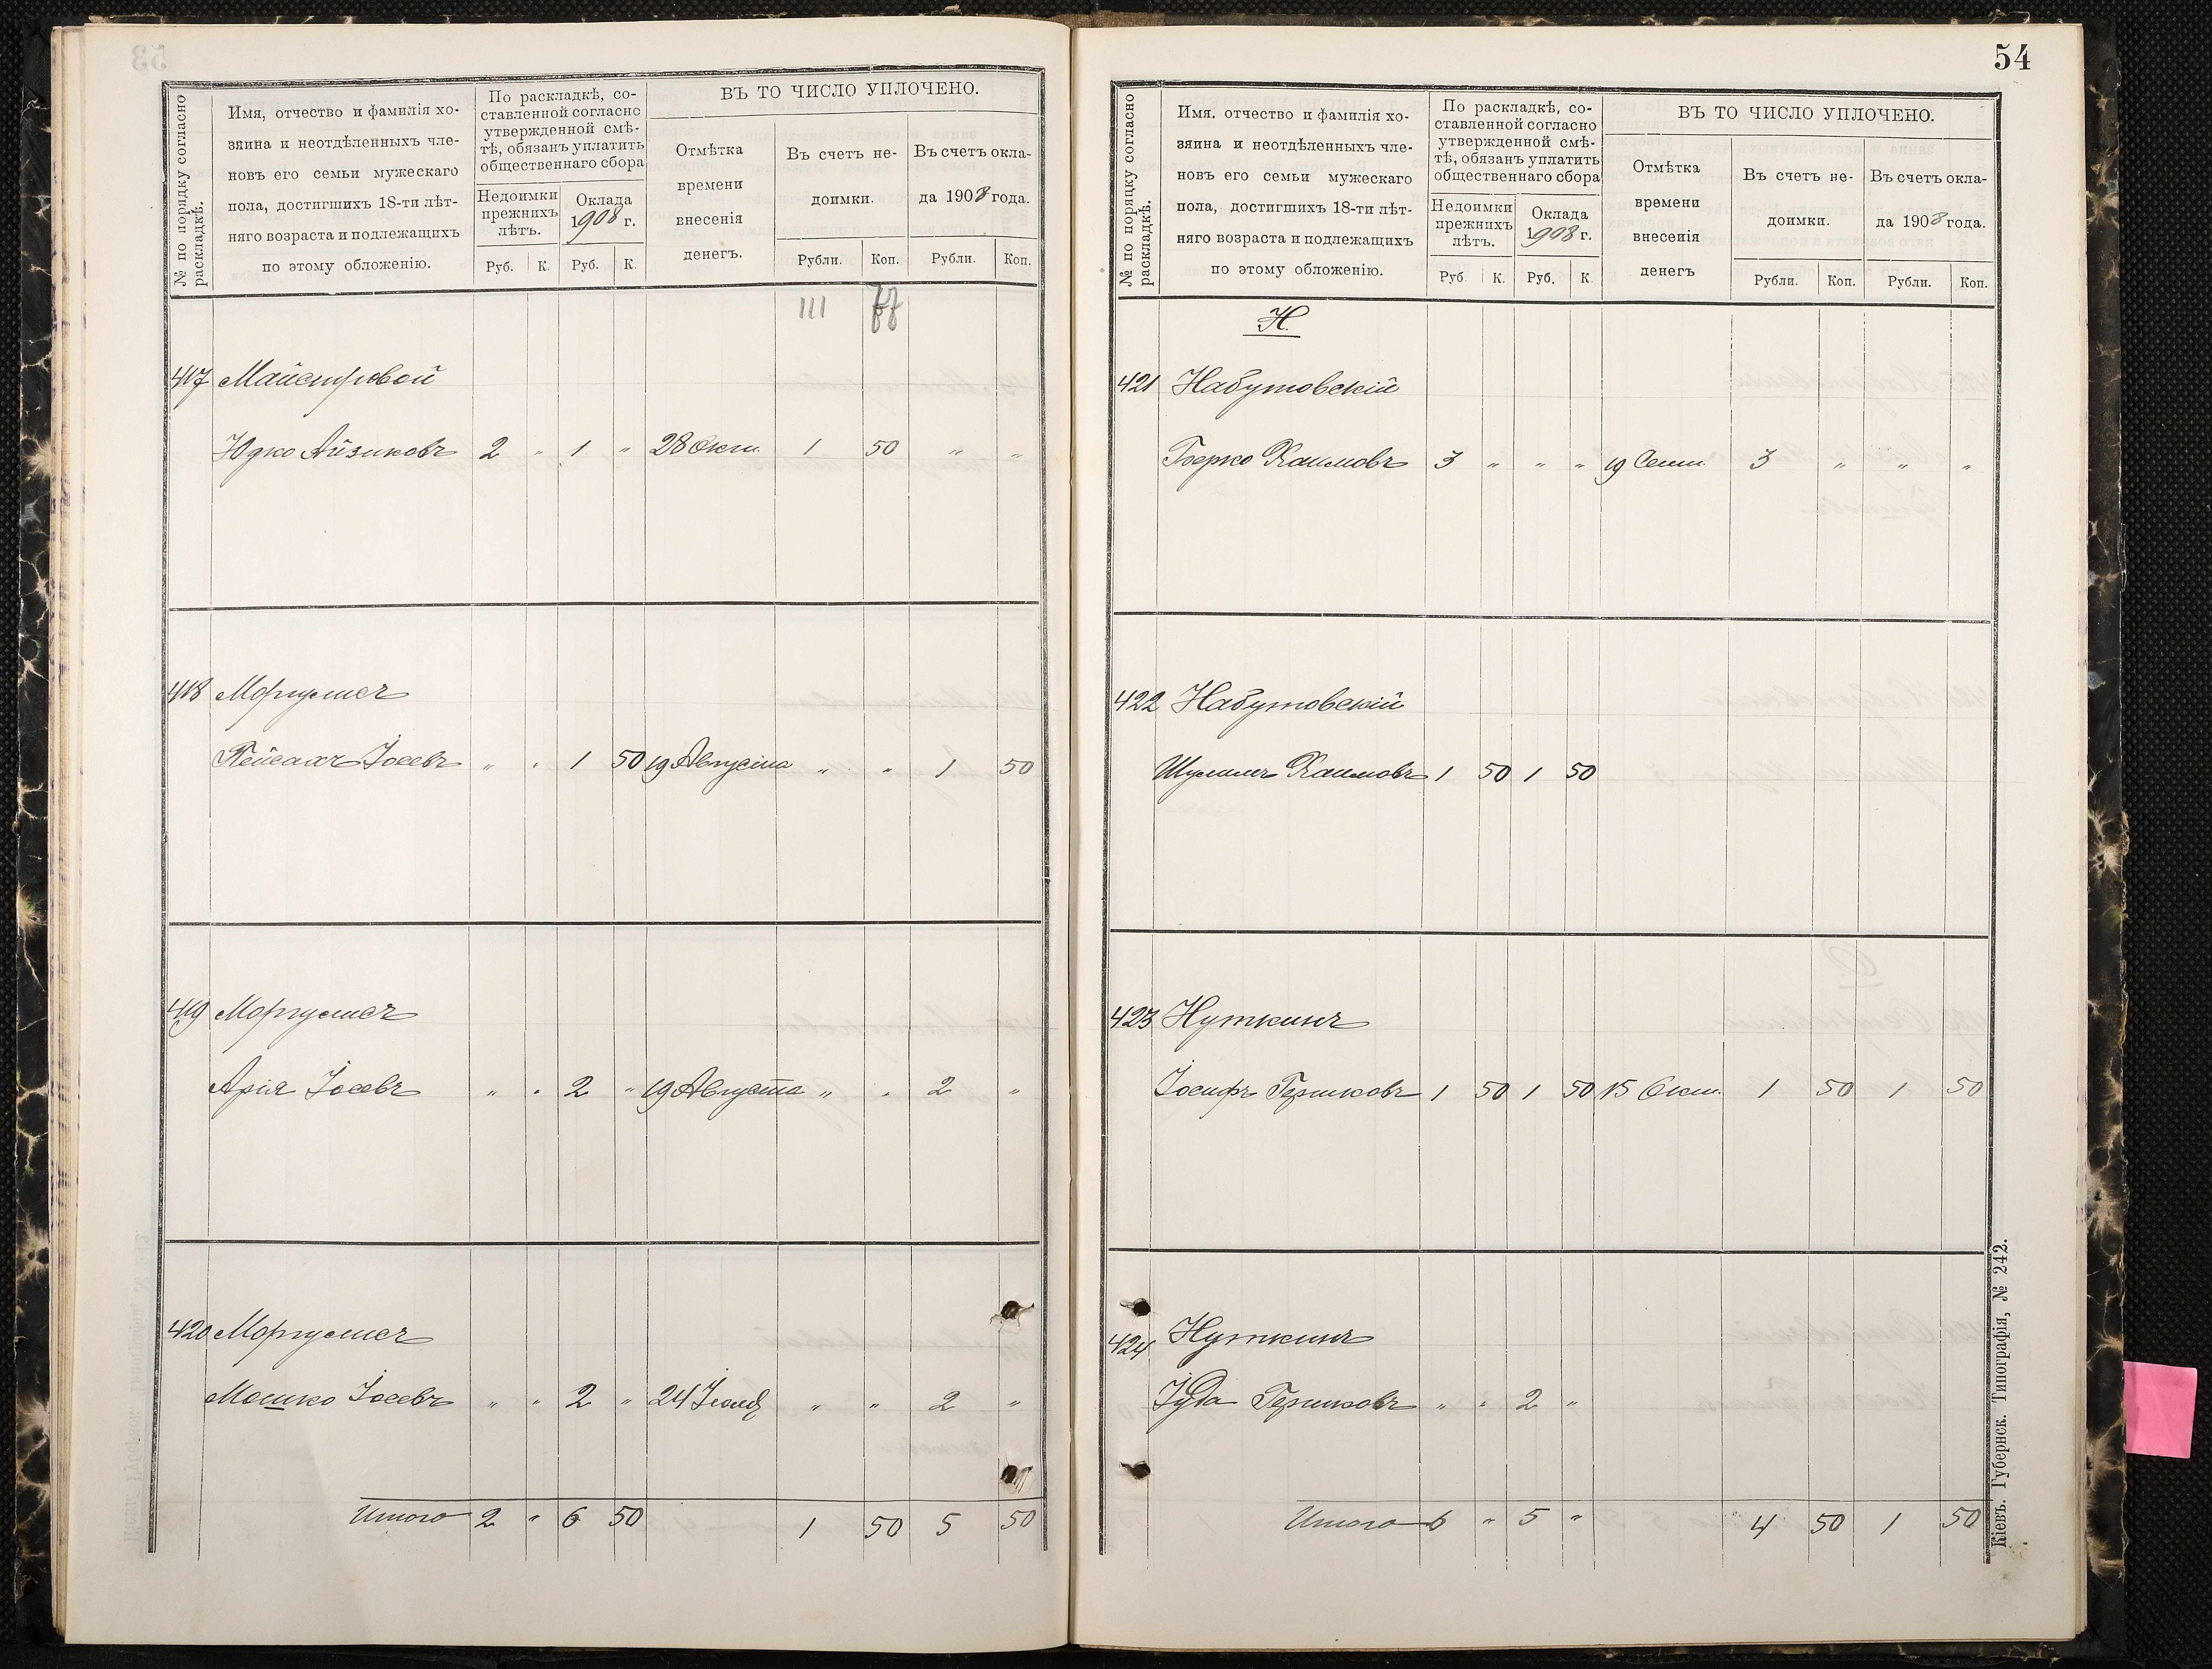 № по порядку согласно раскладкѣ.
Имя, отчество и фамилія хо-
зяина и неотдѣленныхъ чле-
новъ его семьи мужескаго
пола, достигшихъ 18-ти лѣт-
няго возраста и подлежащихъ
по этому обложенію.
По раскладкѣ, со-
ставленной согласно
утвержденной смѣ-
тѣ, обязанъ уплатить
общественнаго сбора
Недоимки
прежнихъ
лѣтъ.
Оклада
1908 г.
Руб. К. Руб. К.
ВЪ ТО ЧИСЛО УПЛОЧЕНО.
Отмѣтка
времени
внесенія
денегъ.
Въ счетъ не-
доимки.
Въ счетъ окла-
да 1908 года.
Рубли. Коп. Рубли. Коп.
III
417 Майстровой
Юдко Айзиковъ 2 " 1 " 28 Окт. 1 50 " "
418 Моргулисъ
Пейсахъ Іосевъ " " 1 50 19 Августа " " 1 50
419 Моргулисъ
Арія Іосевъ " " 2 " 19 Августа " " 2 "
420 Моргулисъ
Мошко Іосевъ " " 2 " 24 " " 2 "
Итого 2 " 6 50 1 50 5 50
54
№ по порядку согласно раскладкѣ.
Имя. отчество и фамилія хо-
зяина и неотдѣленныхъ чле-
новъ его семьи мужескаго
пола, достигшихъ 18-ти лѣт-
няго возраста и подлежащихъ
по этому обложенію.
По раскладкѣ, со-
ставленной согласно
утвержденной смѣ-
тѣ, обязанъ уплатить
общественнаго сбора
Недоимки
прежнихъ
лѣтъ.
Оклада
1908 г.
Руб. К. Руб. К.
ВЪ ТО ЧИСЛО УПЛОЧЕНО.
Отмѣтка
времени
внесенія
денегъ
Въ счетъ не-
доимки.
Въ счетъ окла-
да 1908 года.
Рубли. Коп. Рубли. Коп.
Н.
421 Набутовскій
Берко Хаимовъ 3 " " " 19 Сент. 3 " " "
422 Набутовскій
Шулимъ Хаимовъ 1 50 1 50
423 Нуткинъ
Іосифъ Гершковъ 1 50 1 50 15 Окт. 1 50 1 50
424 Нуткинъ
Іуда Гершковъ " " 2 "
Итого 6 " 5 " 4 50 1 50
Кіевъ. Губернск. Типографія, № 242.